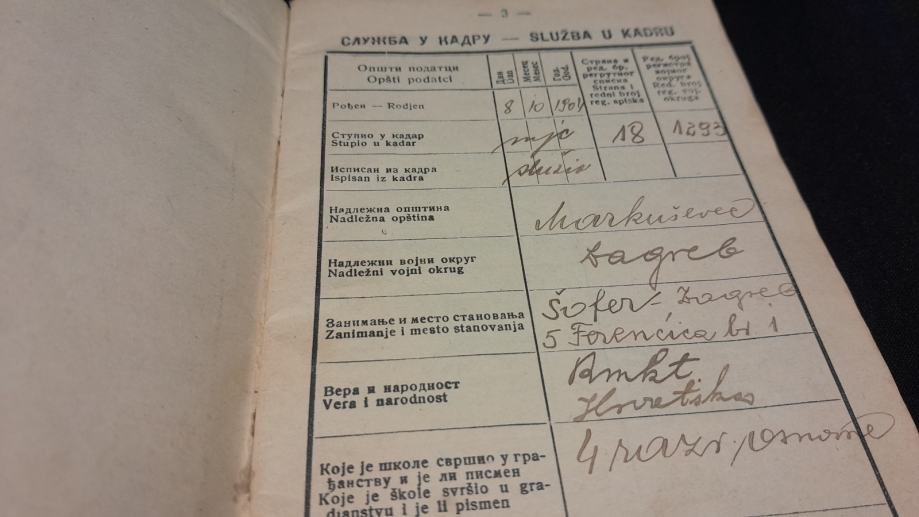 — 3 —
СЛУЖБА У КАДРУ — SLUŽBA U KADRU
Општи податци
Opšti podatci
Дан
Dan
Месец
Mesec
Год.
God.
Страна и
ред. бр.
регрутног
списка
Strana i
redni broj
reg. spiska
Ред. број
регистра
војног
округа
Red. broj
reg. voj.
okruga
Рођен — Rodjen
8 10 1904
Ступио у кадар
Stupio u kadar
nije
18
1293
Исписан из кадра
Ispisan iz kadra
služio
Надлежна општина
Nadležna opština
Markuševec
Надлежни војни округ
Nadležni vojni okrug
Zagreb
Занимање и место становања
Zanimanje i mesto stanovanja
Šofer Zagreb
5 Ferenčica br 1
Вера и народност
Vera i narodnost
Rmkt
Hrvatska
Које је школе свршио у гра-
ђанству и је ли писмен
Koje je škole svršio u gra-
djanstvu i je li pismen
4 razr.